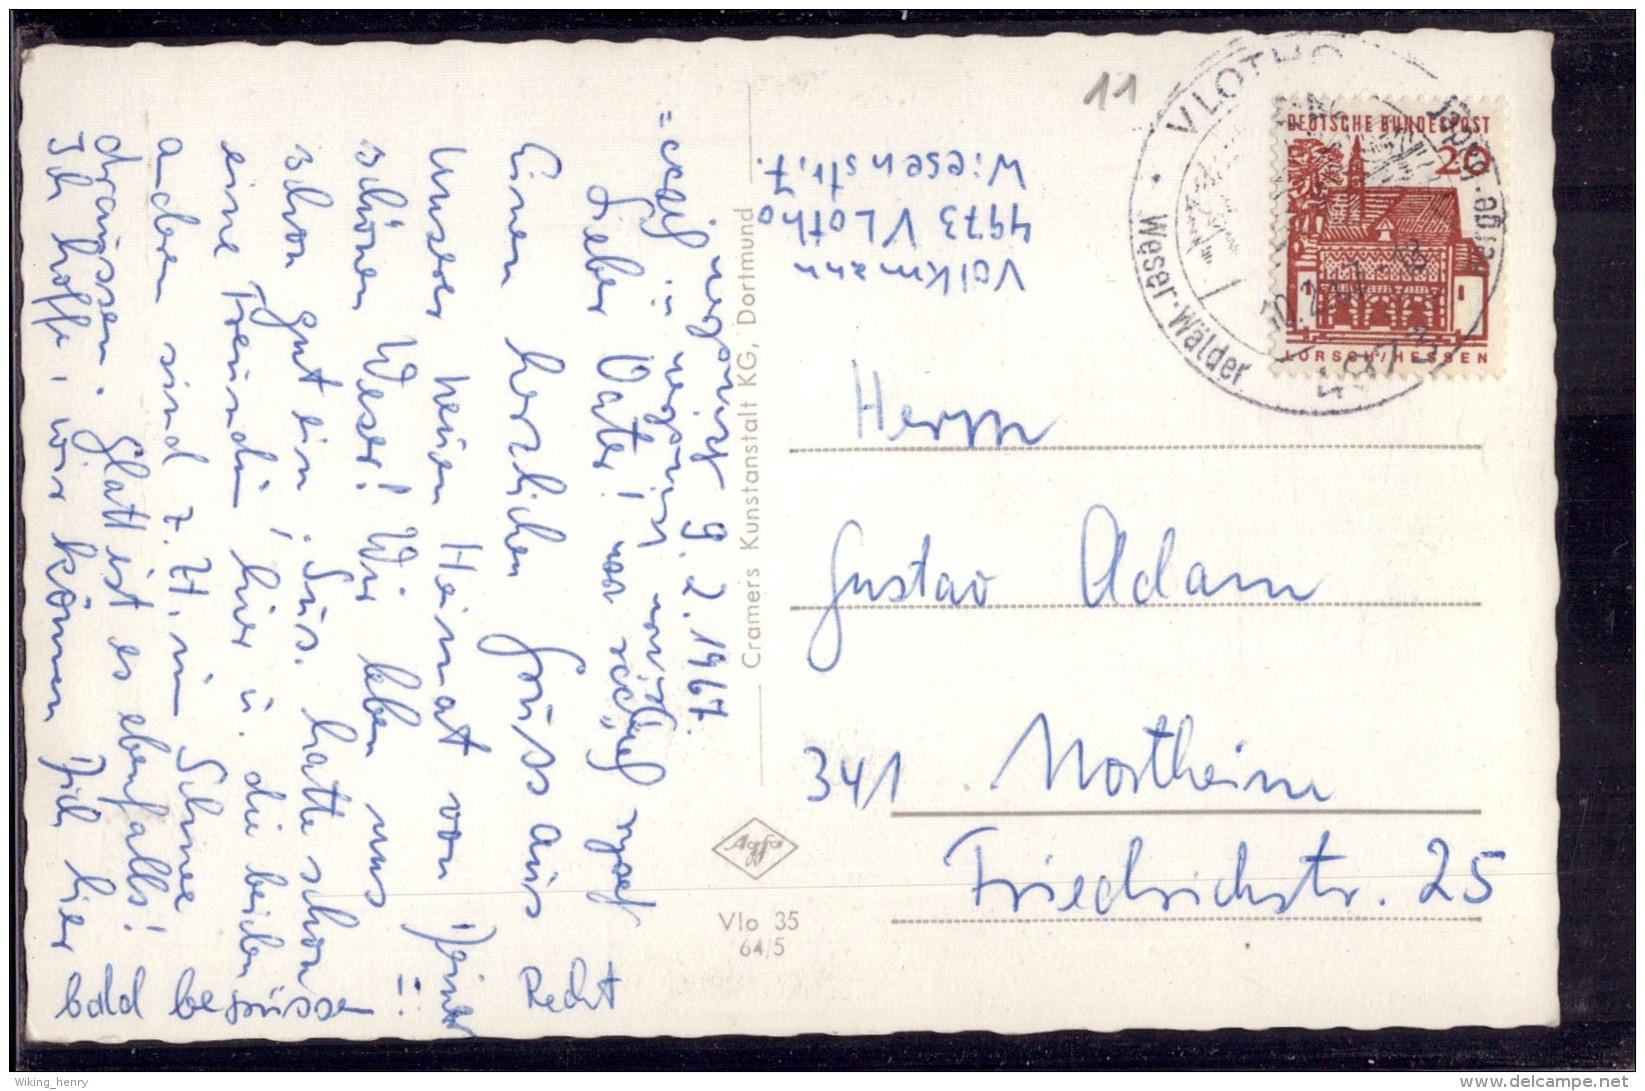 11
VLOTHO
Weser · Wälder
4973
DEUTSCHE BUNDESPOST
20
LORSCH/HESSEN
Volkmann
4973 Vlotho
Wiesenstr. 7.
9. 2. 1967.
Lieber Vater!
Einen herzlichen Gruss aus
unserer neuen Heimat von Deiner
schönen Weser! Wir leben uns
schon gut ein. Sus. hatte schon
eine Freundin, hier u. die beiden
anderen sind z. Zt. im Schnee
draussen. Glatt ist es ebenfalls!
Ich hoffe, wir können Dich hier
bald begrüssen!
Recht
Cramers Kunstanstalt KG, Dortmund
Agfa
Vlo 35
64/5
Herrn
Gustav Adam
341 Northeim
Friedrichstr. 25
Wiking_henry
www.delcampe.net